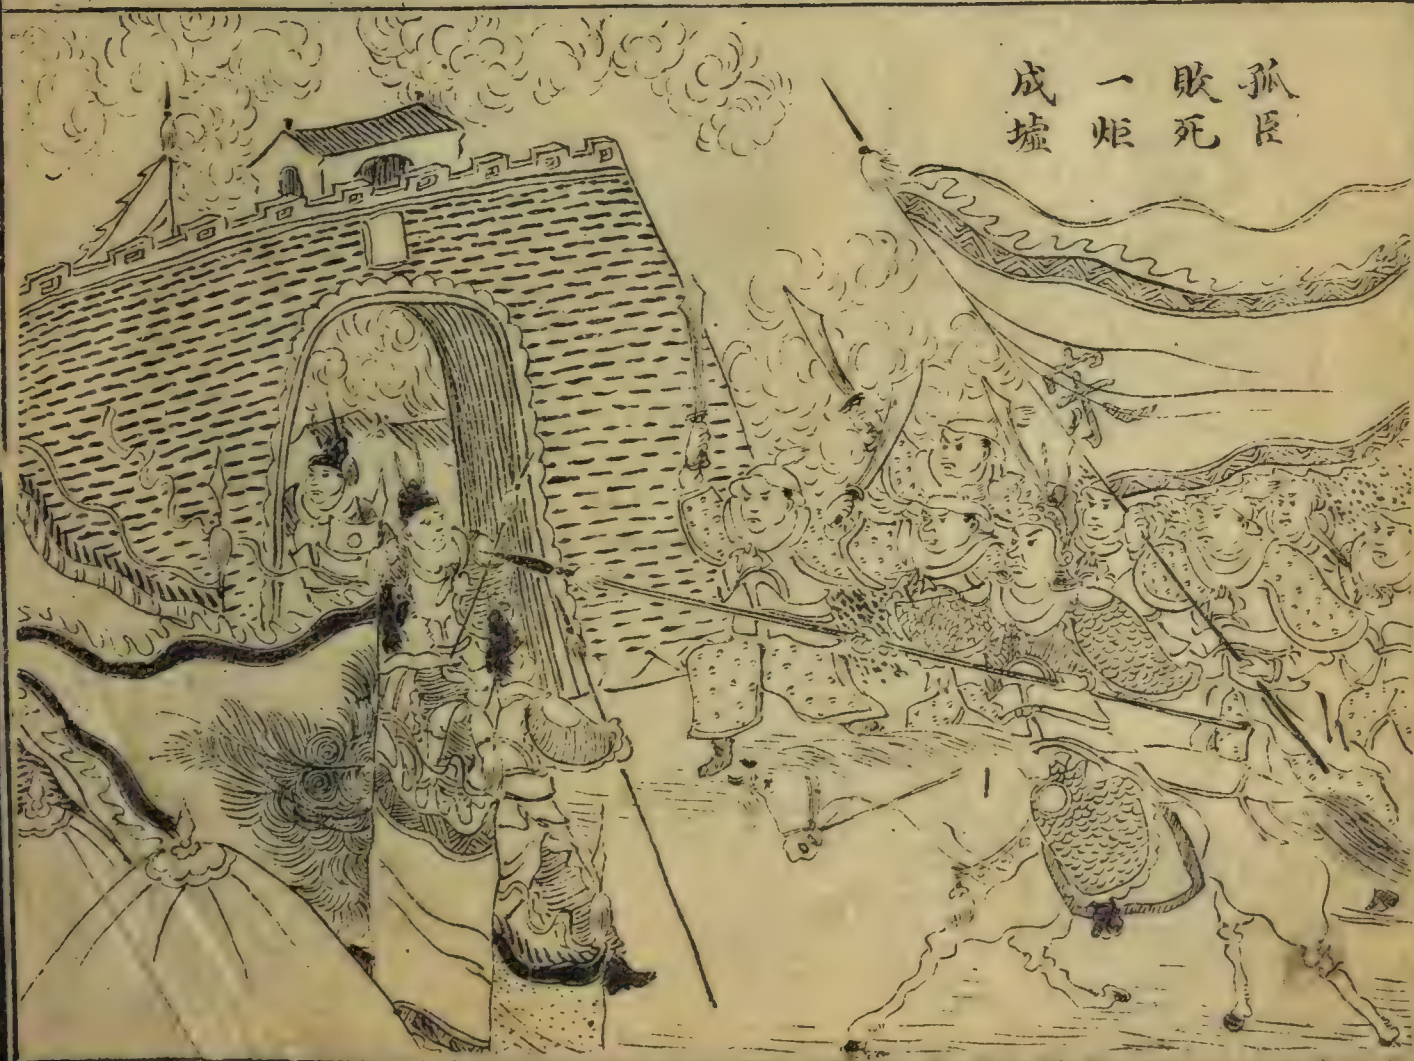 孤臣
敗死
一炬
成墟